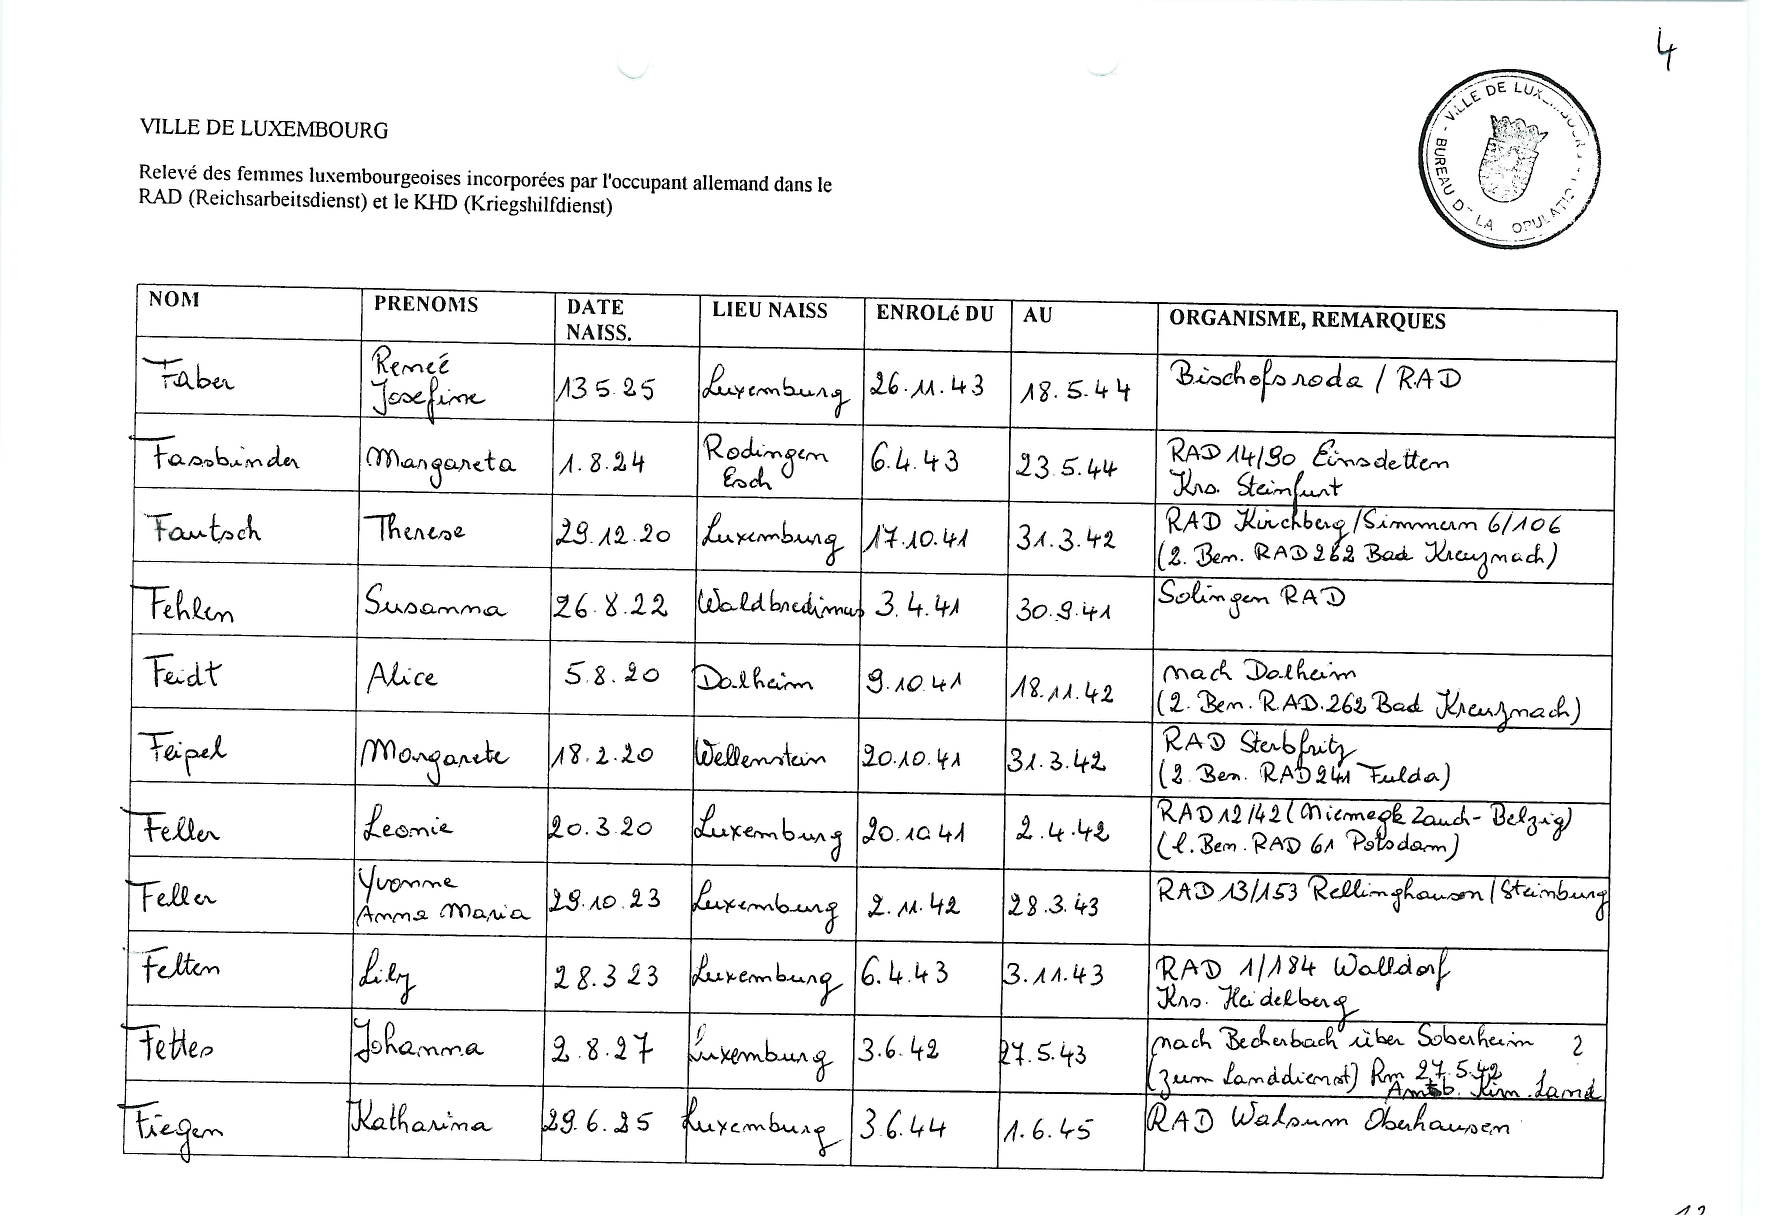 4
VILLE DE LUXEMBOURG
BUREAU DE LA POPULATION
VILLE DE LUXEMBOURG
Relevé des femmes luxembourgeoises incorporées par l'occupant allemand dans le
RAD (Reichsarbeitsdienst) et le KHD (Kriegshilfdienst)
NOM PRENOMS DATE NAISS. LIEU NAISS ENROLé DU AU ORGANISME, REMARQUES
Faber Reneé Josefine 13 5.25 Luxemburg 26.11.43 18.5.44 Bischofsroda / RAD
Fassbinder Margareta 1.8.24 Rodingen Esch 6.4.43 23.5.44 RAD 14/90 Einsdetten
Krs. Steinfurt
Fautsch Therese 29.12.20 Luxemburg 17.10.41 31.3.42 RAD Kirchberg/Simmern 6/106
(2. Ben. RAD 262 Bad Kreuznach)
Fehlen Susanna 26.8.22 Waldbredimus 3.4.41 30.9.41 Solingen RAD
Feidt Alice 5.8.20 Dalheim 9.10.41 18.11.42 nach Dalheim
(2. Ben. RAD.262 Bad Kreuznach)
Feipel Margarete 18.2.20 Wellenstein 20.10.41 31.3.42 RAD Sterbfritz
(2. Ben. RAD 241 Fulda)
Feller Leonie 20.3.20 Luxemburg 20.10.41 2.4.42 RAD 12/42 (Niemegk Zauch-Belzig)
(l. Ben. RAD 61 Potsdam)
Feller Yvonne Anna Maria 29.10.23 Luxemburg 2.11.42 28.3.43 RAD 13/153 Rellinghausen/Steinburg
Felten Lily 28.3 23 Luxemburg 6.4.43 3.11.43 RAD 1/184 Walldorf
Krs. Heidelberg
Fettes Johanna 2.8.27 Luxemburg 3.6.42 27.5.43 nach Becherbach über Soberheim ?
(zum Landdienst) Rm 27.5.42
Amtsb. Kirn.Land
Fiegen Katharina 29.6.25 Luxemburg 3.6.44 1.6.45 RAD Walsum Oberhausen